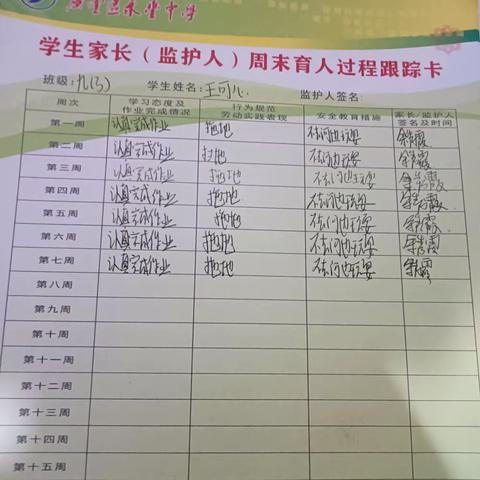 学生家长（监护人）周末育人过程跟踪卡
班级：九(3) 学生姓名：王可心 监护人签名：
周次 学习态度及作业完成情况 行为规范劳动实践表现 安全教育措施 家长/监护人签名及时间
第一周 认真完成作业 拖地 不去河边玩耍
第二周 认真完成作业 扫地 不去河边玩耍
第三周 认真完成作业 拖地 不去河边玩耍
第四周 认真完成作业 拖地 不去河边玩耍
第五周 认真完成作业 拖地 不去河边玩耍
第六周 认真完成作业 拖地 不去河边玩耍
第七周 认真完成作业 拖地 不去河边玩耍
第八周
第九周
第十周
第十一周
第十二周
第十三周
第十四周
第十五周